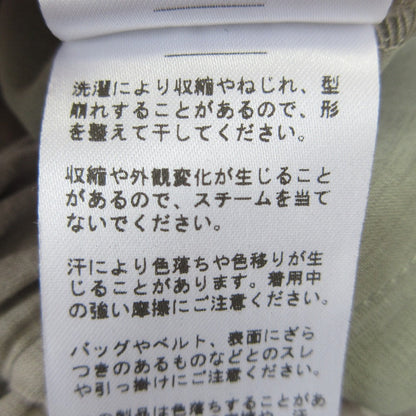 洗濯により収縮やねじれ、型
崩れすることがあるので、形
を整えて干してください。
収縮や外観変化が生じること
があるので、スチームを当て
ないでください。
汗により色落ちや色移りが生
じることがあります。着用中
の強い摩擦にご注意ください。
バッグやベルト、表面にざら
つきのあるものなどとのスレ
や引っ掛けにご注意ください。
の製品は色落ちすることがあ